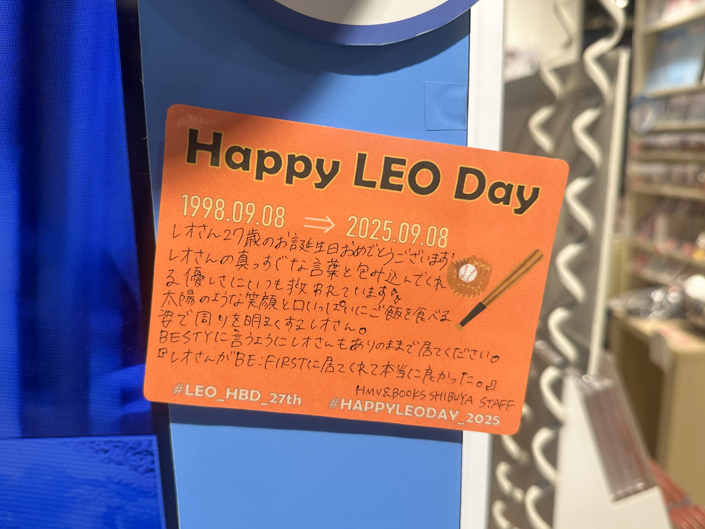 Happy LEO Day
1998.09.08 ⇒ 2025.09.08
レオさん27歳のお誕生日おめでとうございます!
レオさんの真っすぐな言葉と包み込んでくれ
る優しさにいつも救われています
太陽のような笑顔と口いっぱいにご飯を食べる
姿で周りを明るくするレオさん。
BESTYに言うようにレオさんもありのままで居てください。
『レオさんがBE:FIRSTに居てくれて本当に良かった。』
HMV&BOOKS SHIBUYA STAFF
#LEO_HBD_27th #HAPPYLEODAY_2025